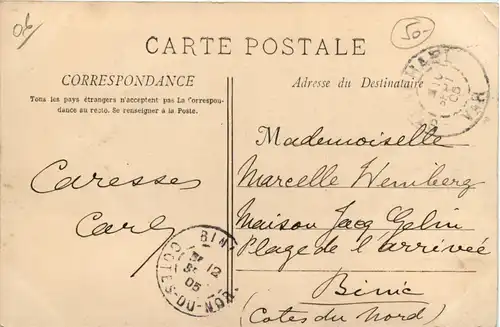 06
50-
CARTE POSTALE
CORRESPONDANCE
Tous les pays étrangers n'acceptent pas La Correspon-
dance au recto. Se renseigner à la Poste.
Adresse du Destinataire
VAR
05
Caresses
Carl
Mademoiselle
Marcelle Wemberg
Maison Jacq Gelin
Plage de l'arrivée
Binic
(Cotes du Nord)
BINIC
12
05
COTES-DU-NORD